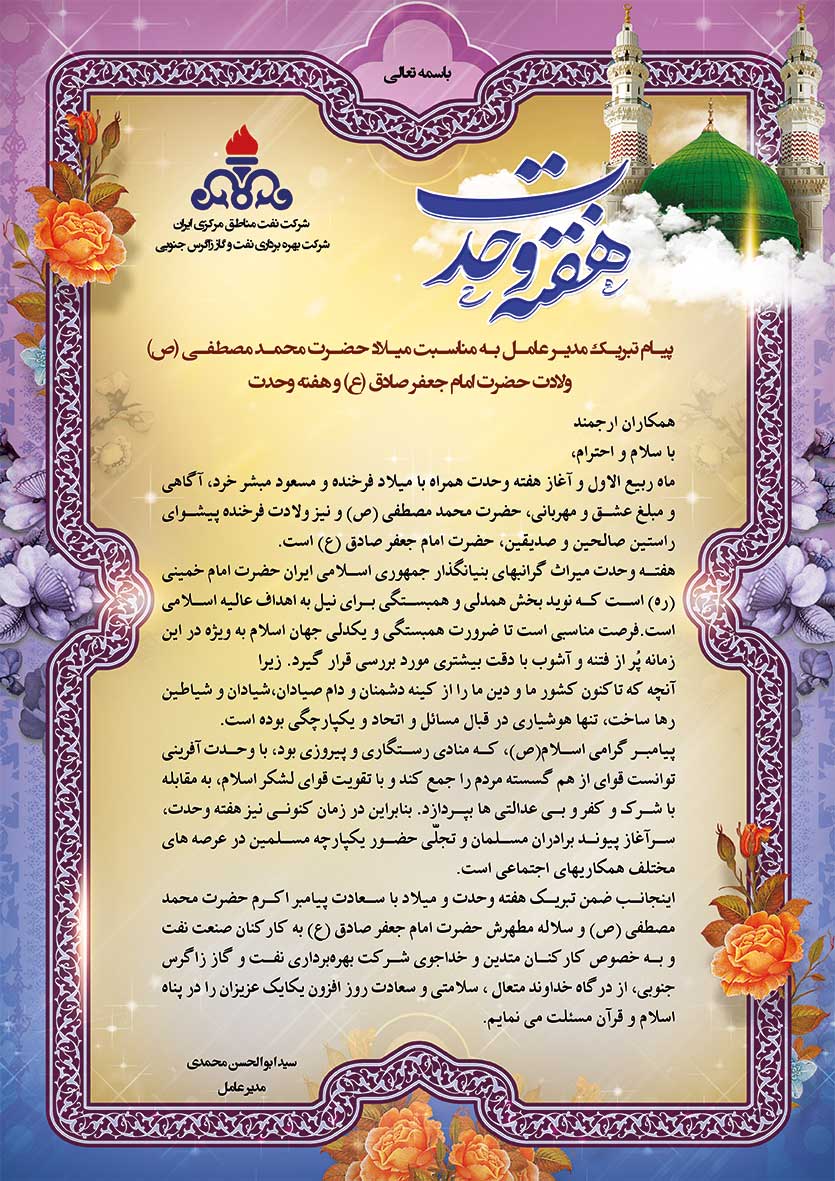 باسمه تعالی
هفته وحدت
شرکت نفت مناطق مرکزی ایران
شرکت بهره برداری نفت و گاز زاگرس جنوبی
پیام تبریک مدیر عامل به مناسبت میلاد حضرت محمد مصطفی (ص)
ولادت حضرت امام جعفر صادق (ع) و هفته وحدت
همکاران ارجمند
با سلام و احترام،
ماه ربیع الاول و آغاز هفته وحدت همراه با میلاد فرخنده و مسعود مبشر خرد، آگاهی
و مبلغ عشق و مهربانی، حضرت محمد مصطفی (ص) و نیز ولادت فرخنده پیشوای
راستین صالحین و صدیقین، حضرت امام جعفر صادق (ع) است.
هفته وحدت میراث گرانبهای بنیانگذار جمهوری اسلامی ایران حضرت امام خمینی
(ره) است که نوید بخش همدلی و همبستگی برای نیل به اهداف عالیه اسلامی
است.فرصت مناسبی است تا ضرورت همبستگی و یکدلی جهان اسلام به ویژه در این
زمانه پُر از فتنه و آشوب با دقت بیشتری مورد بررسی قرار گیرد. زیرا
آنچه که تاکنون کشور ما و دین ما را از کینه دشمنان و دام صیادان،شیادان و شیاطین
رها ساخت، تنها هوشیاری در قبال مسائل و اتحاد و یکپارچگی بوده است.
پیامبر گرامی اسلام(ص)، که منادی رستگاری و پیروزی بود، با وحدت آفرینی
توانست قوای از هم گسسته مردم را جمع کند و با تقویت قوای لشکر اسلام، به مقابله
با شرک و کفر و بی عدالتی ها بپردازد. بنابراین در زمان کنونی نیز هفته وحدت،
سرآغاز پیوند برادران مسلمان و تجلّی حضور یکپارچه مسلمین در عرصه های
مختلف همکاریهای اجتماعی است.
اینجانب ضمن تبریک هفته وحدت و میلاد با سعادت پیامبر اکرم حضرت محمد
مصطفی (ص) و سلاله مطهرش حضرت امام جعفر صادق (ع) به کارکنان صنعت نفت
و به خصوص کارکنان متدین و خداجوی شرکت بهره‌برداری نفت و گاز زاگرس
جنوبی، از درگاه خداوند متعال ، سلامتی و سعادت روز افزون یکایک عزیزان را در پناه
اسلام و قرآن مسئلت می نمایم.
سید ابوالحسن محمدی
مدیر عامل